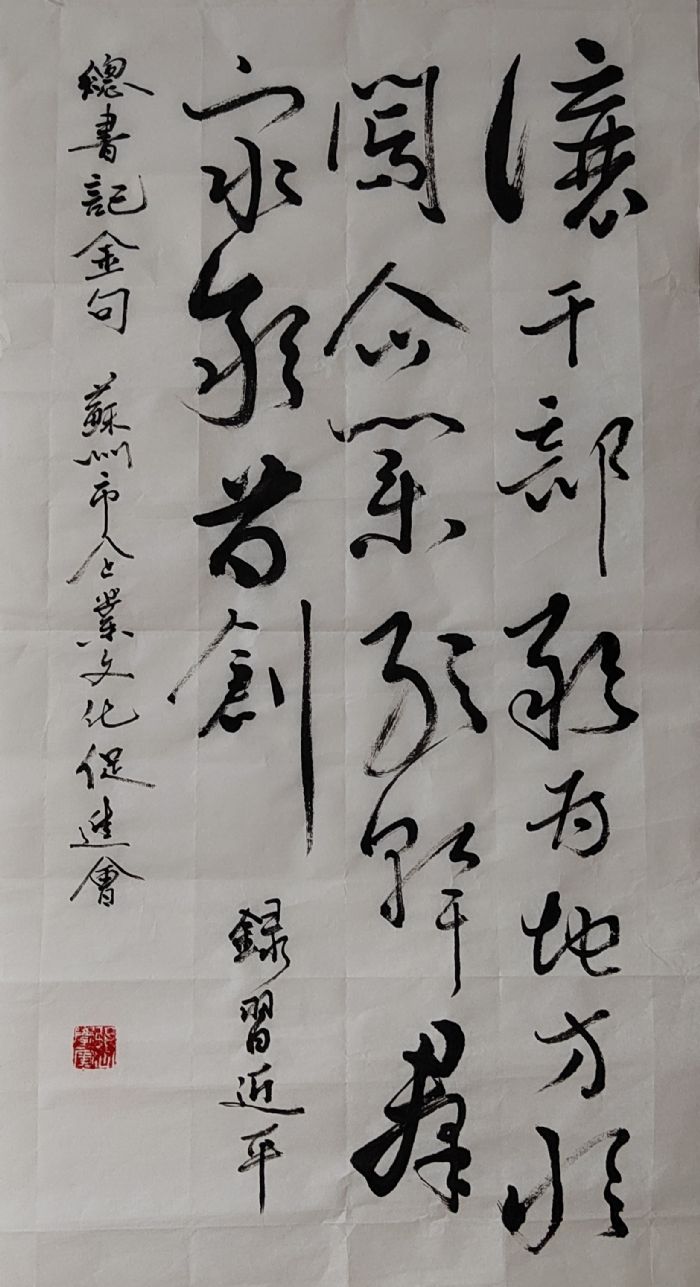 讓干部敢为地方敢
闖企業敢幹群
眾敢首創 録習近平
總書記金句 蘇州市企業文化促進會